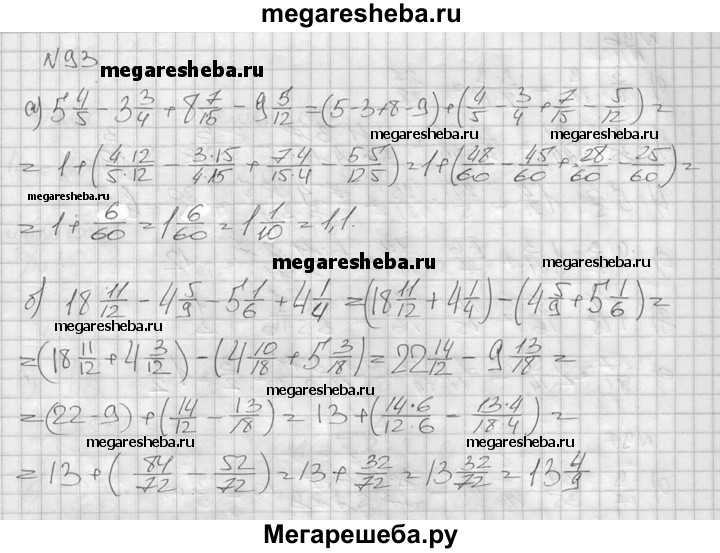 megaresheba.ru
N93
megaresheba.ru
а) 5 4/5 - 3 3/4 + 8 7/15 - 9 5/12 = (5-3+8-9) + (4/5 - 3/4 + 7/15 - 5/12) =
megaresheba.ru megaresheba.ru
= 1 + (4·12/5·12 - 3·15/4·15 + 7·4/15·4 - 5·5/12·5) = 1 + (48/60 - 45/60 + 28/60 - 25/60) =
megaresheba.ru
= 1 + 6/60 = 1 6/60 = 1 1/10 = 1,1.
megaresheba.ru
б) 18 11/12 - 4 5/9 - 5 1/6 + 4 1/4 = (18 11/12 + 4 1/4) - (4 5/9 + 5 1/6) =
megaresheba.ru megaresheba.ru
= (18 11/12 + 4 3/12) - (4 10/18 + 5 3/18) = 22 14/12 - 9 13/18 =
megaresheba.ru
= (22-9) + (14/12 - 13/18) = 13 + (14·6/12·6 - 13·4/18·4) =
megaresheba.ru megaresheba.ru
= 13 + (84/72 - 52/72) = 13 + 32/72 = 13 32/72 = 13 4/9
Мегарешеба.ру